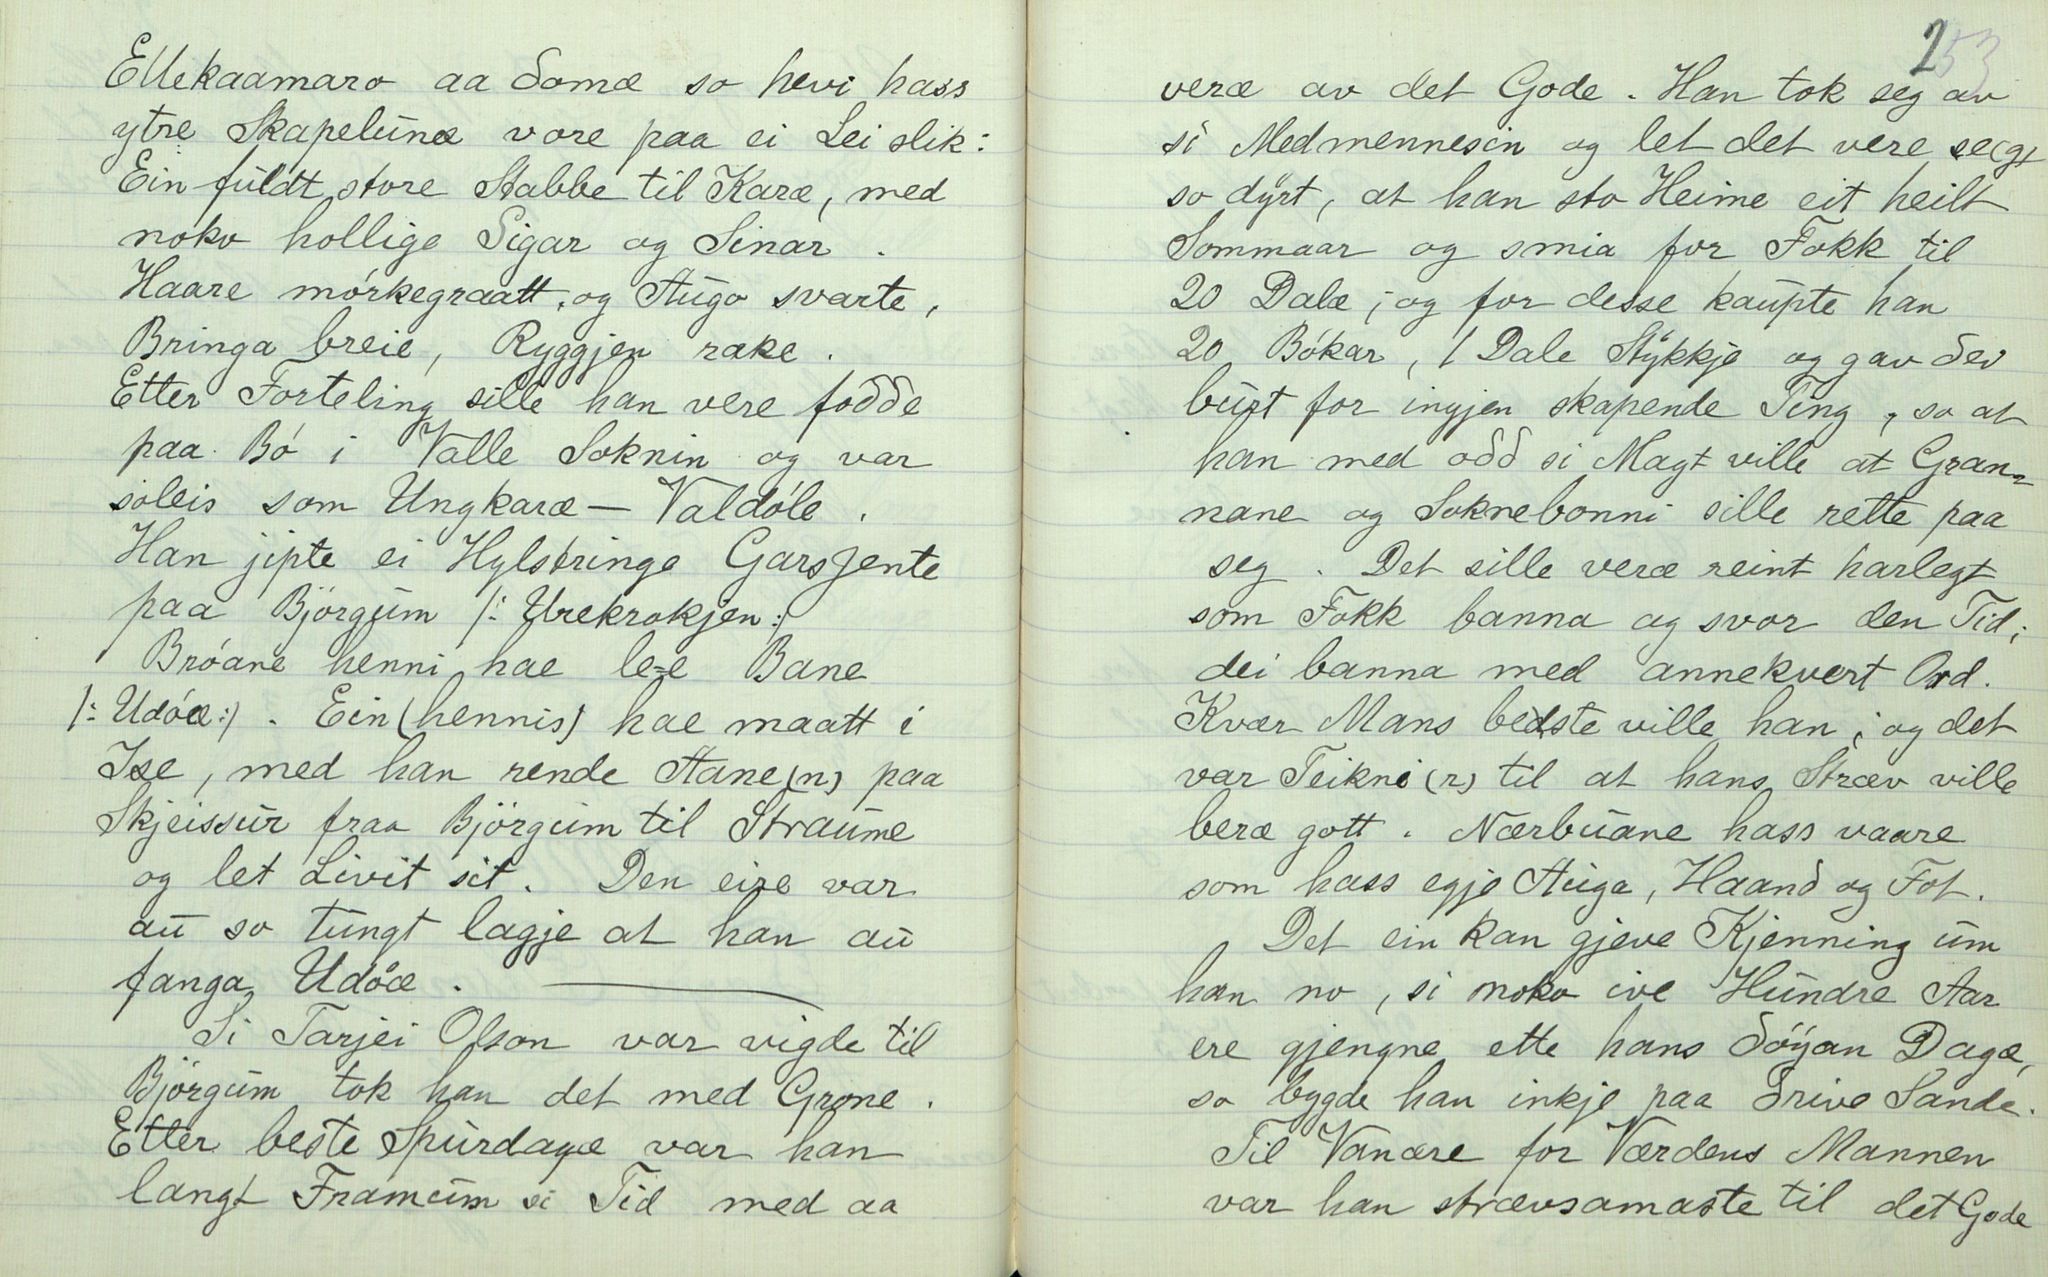 Ellekaamaro aa domæ so hevi hass
ytre Skapelunæ vore paa ei Lei slik:
Ein fuldt store Stabbe til Karæ, med
noko hollige Sigar og Sinar.
Haare mórkegraatt, og Augo svarte,
Bringa breie, Ryggjen rake.
Etter Forteling sille han vere fodde
paa Bó i Valle Soknin og var
soleis som Ungkaræ — Valdóle.
Han jipte ei Hylstringe Garsjente
paa Björgum /: Urekrokjen :/
Bróane henni hae le=e Bane
/: Udóæ :/. Ein (hennis) hae maatt i
Ise, med han rende Aane(n) paa
Skjeissur fraa Björgum til Straume
og let Livit sit. Den eire var
au so tungt lagje at han au
fanga Udóæ. —
Si Tarjei Olson var vigde til
Björgum tok han det med Grone.
Etter beste Spurdagæ var han
langt Framum si Tid med aa
253
veræ av det Gode. Han tok seg av
si Medmennesin og let det vere se(g)
so dyrt, at han sto Heime eit heilt
Sommaar og smia for Fokk til
20 Dalæ; og for desse kaupte han
20 Bókar, 1 Dale Stykkje og gav dei
burt for ingjen skapende Ting, so at
han med odd si Magt ville at Gran-
nane og Soknebonni sille rette paa
seg. Det sille veræ reint harlegt
som Fokk banna og svor den Tid;
dei banna med annekvert Ord.
Kvær Mans bedste ville han; og det
var Teikni(r) til at hans Stræv ville
beræ gott. Nærbuane hass vaare
som hass egje Auga, Haand og Fot.
Det ein kan gjeve Kjenning um
han no, si noko ive Hundre Aar
ere gjengne ette hans döyan Dagæ,
so bygde han inkje paa Drive Sande.
Til Vanære for Værdens Mannen
var han strævsamaste til det Gode